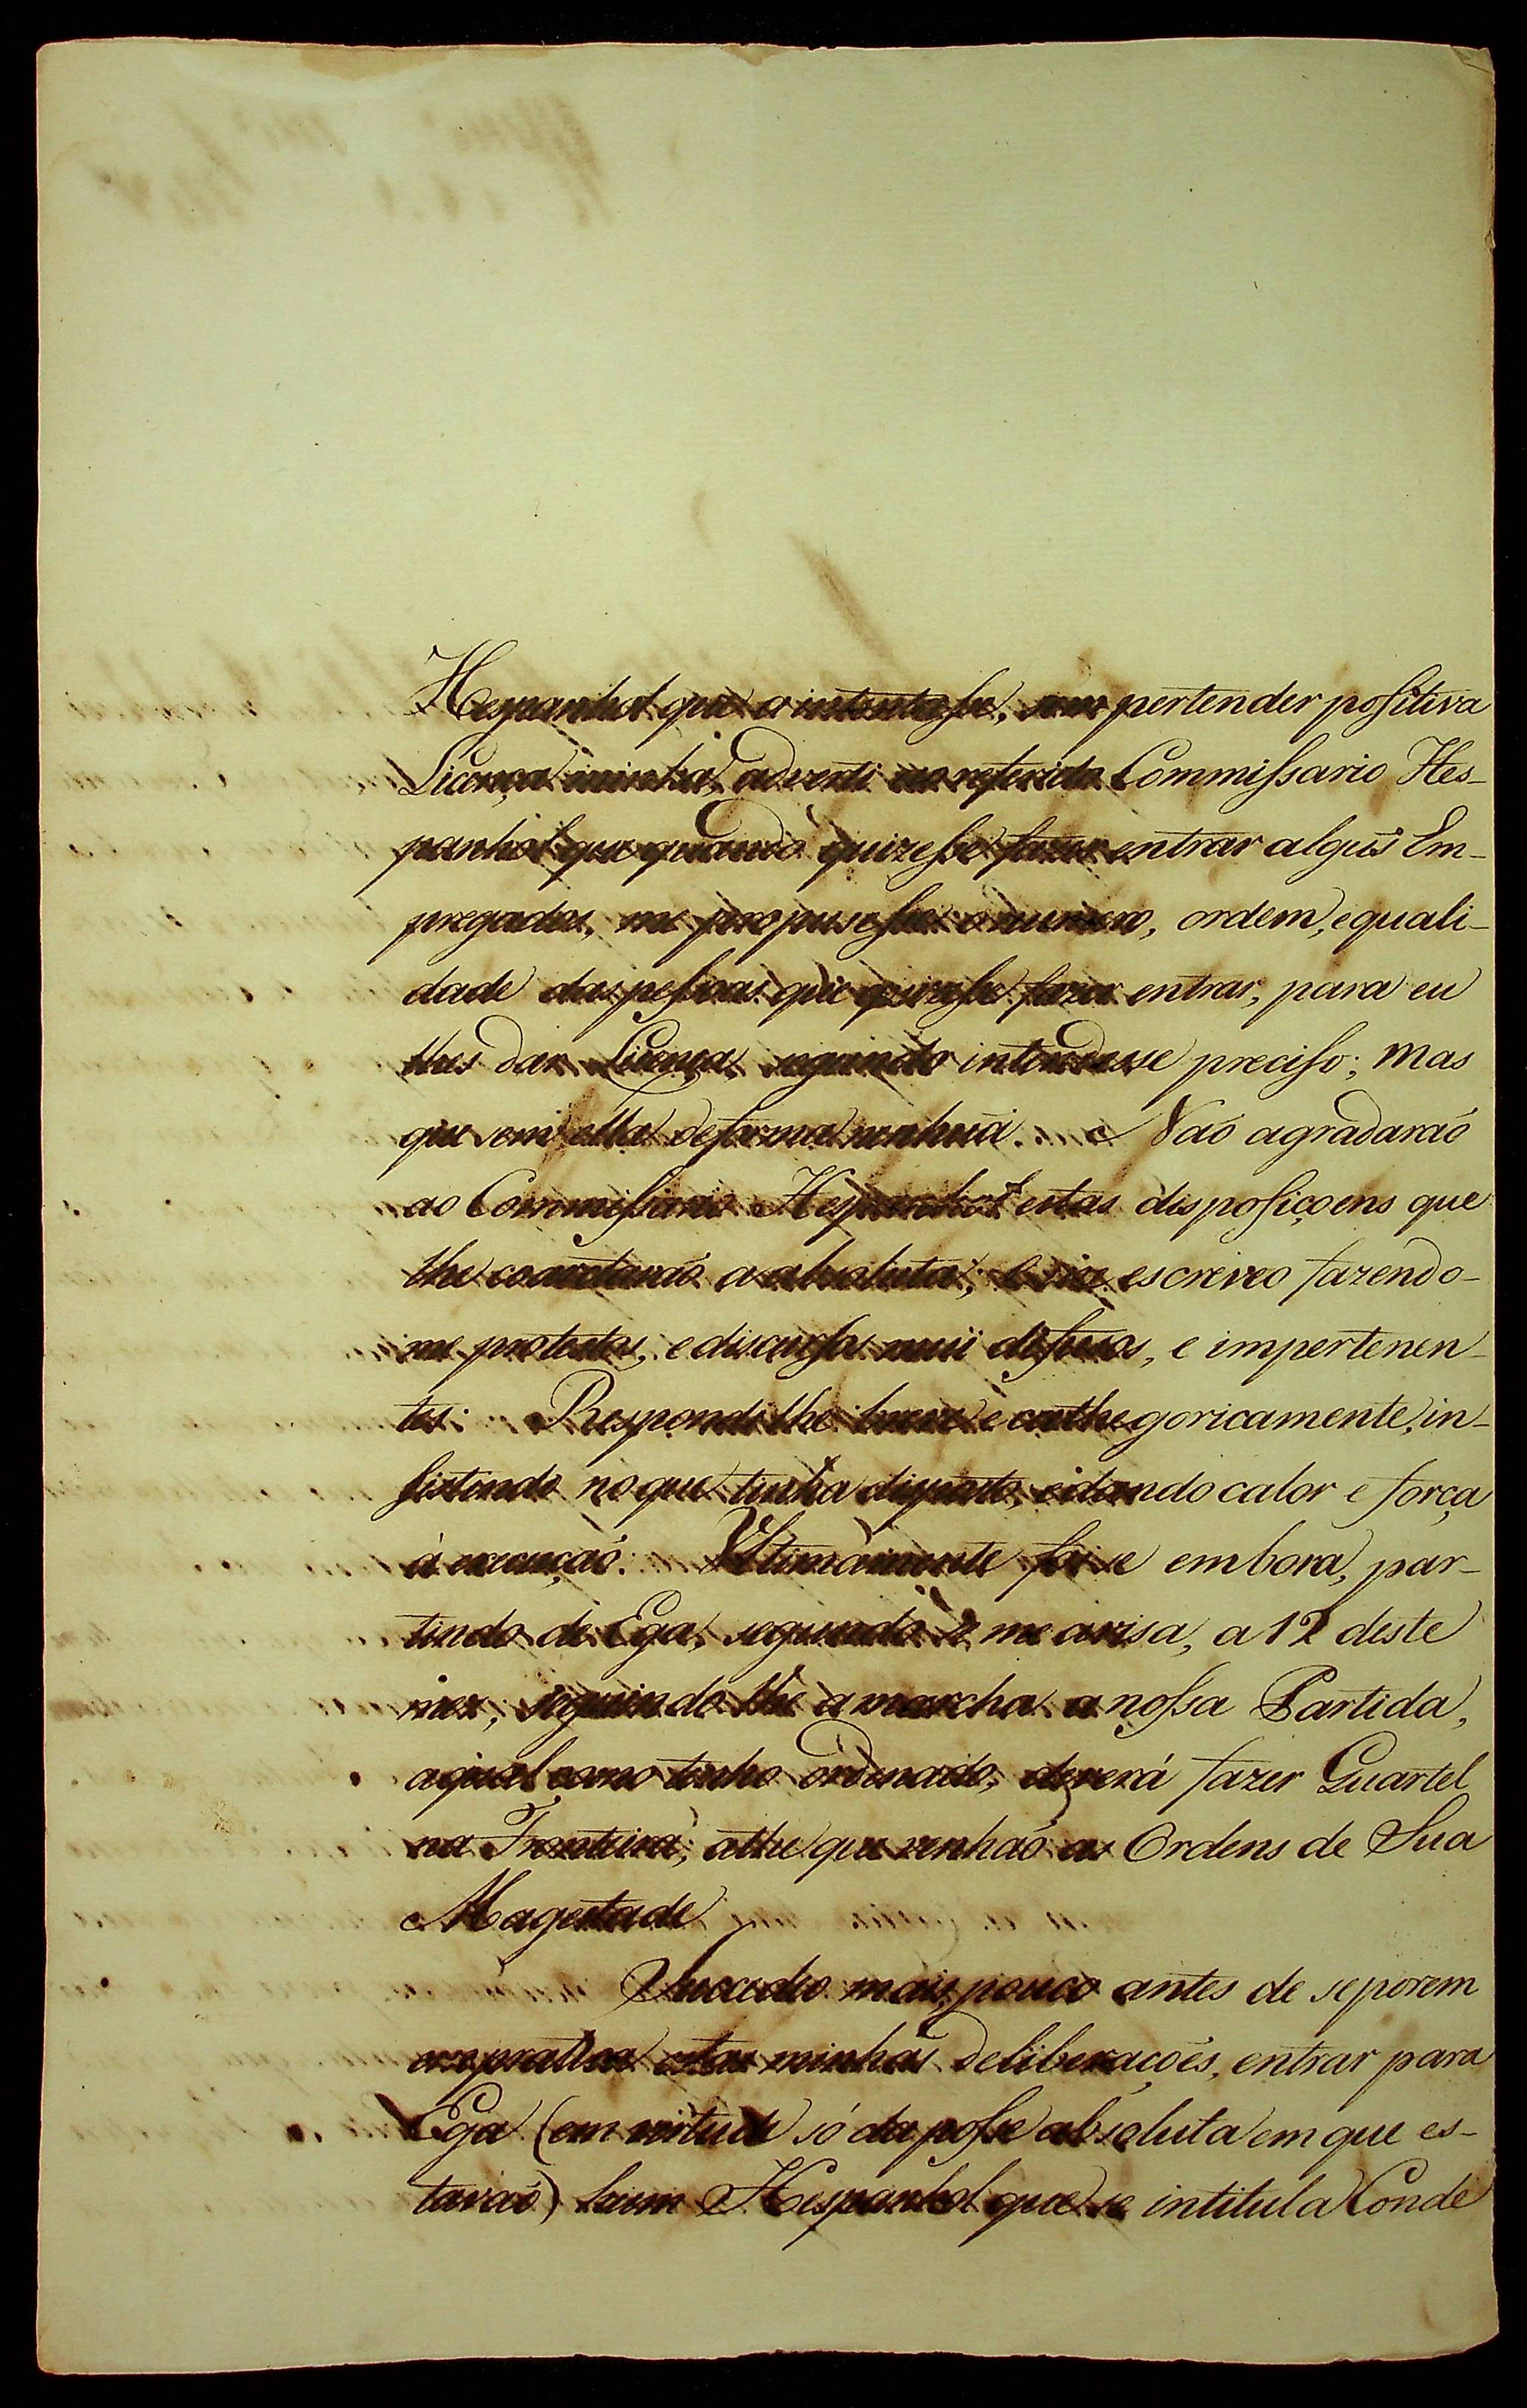 Hespanhol que o intentasse, sem pertender positiva
Licença minha, adverti ao referido Commissario Hes-
panhol que quando quizesse fazer entrar algus Em-
pregados, me propusesse o numero, ordem, e quali-
dade das pessoas que quizesse fazer entrar, para eu
lhes dar Licença, segundo intendesse preciso; mas
que sem ella de forma nenhuã. Naõ agradaraõ
ao Commissario Hespanhol estas disposiçoens que
lhe coarctavaõ a absoluta; e me escreveo fazendo-
me protestos, e discursos mui difusos, e impertenen-
tes: Respondi lhe breve e cathegoricamente, in-
sistindo no que tinha disposto, e dando calor e força
á execuçaõ. Ultimamente foi se embora, par-
tindo de Ega, segundo se me avisa, a 12 deste
mez; seguindo lhe a marcha a nossa Partida,
a qual como tenho ordenado, deverá fazer Quartel
na Fronteira, athe que venhaõ as Ordens de Sua
Magestade.
Succedeo mais, pouco antes de se porem
em pratica estas minhas deliberaçoẽs, entrar para
Ega (em virtude só da posse absoluta em que es-
tavaõ) hum Hespanhol que se intitula Conde